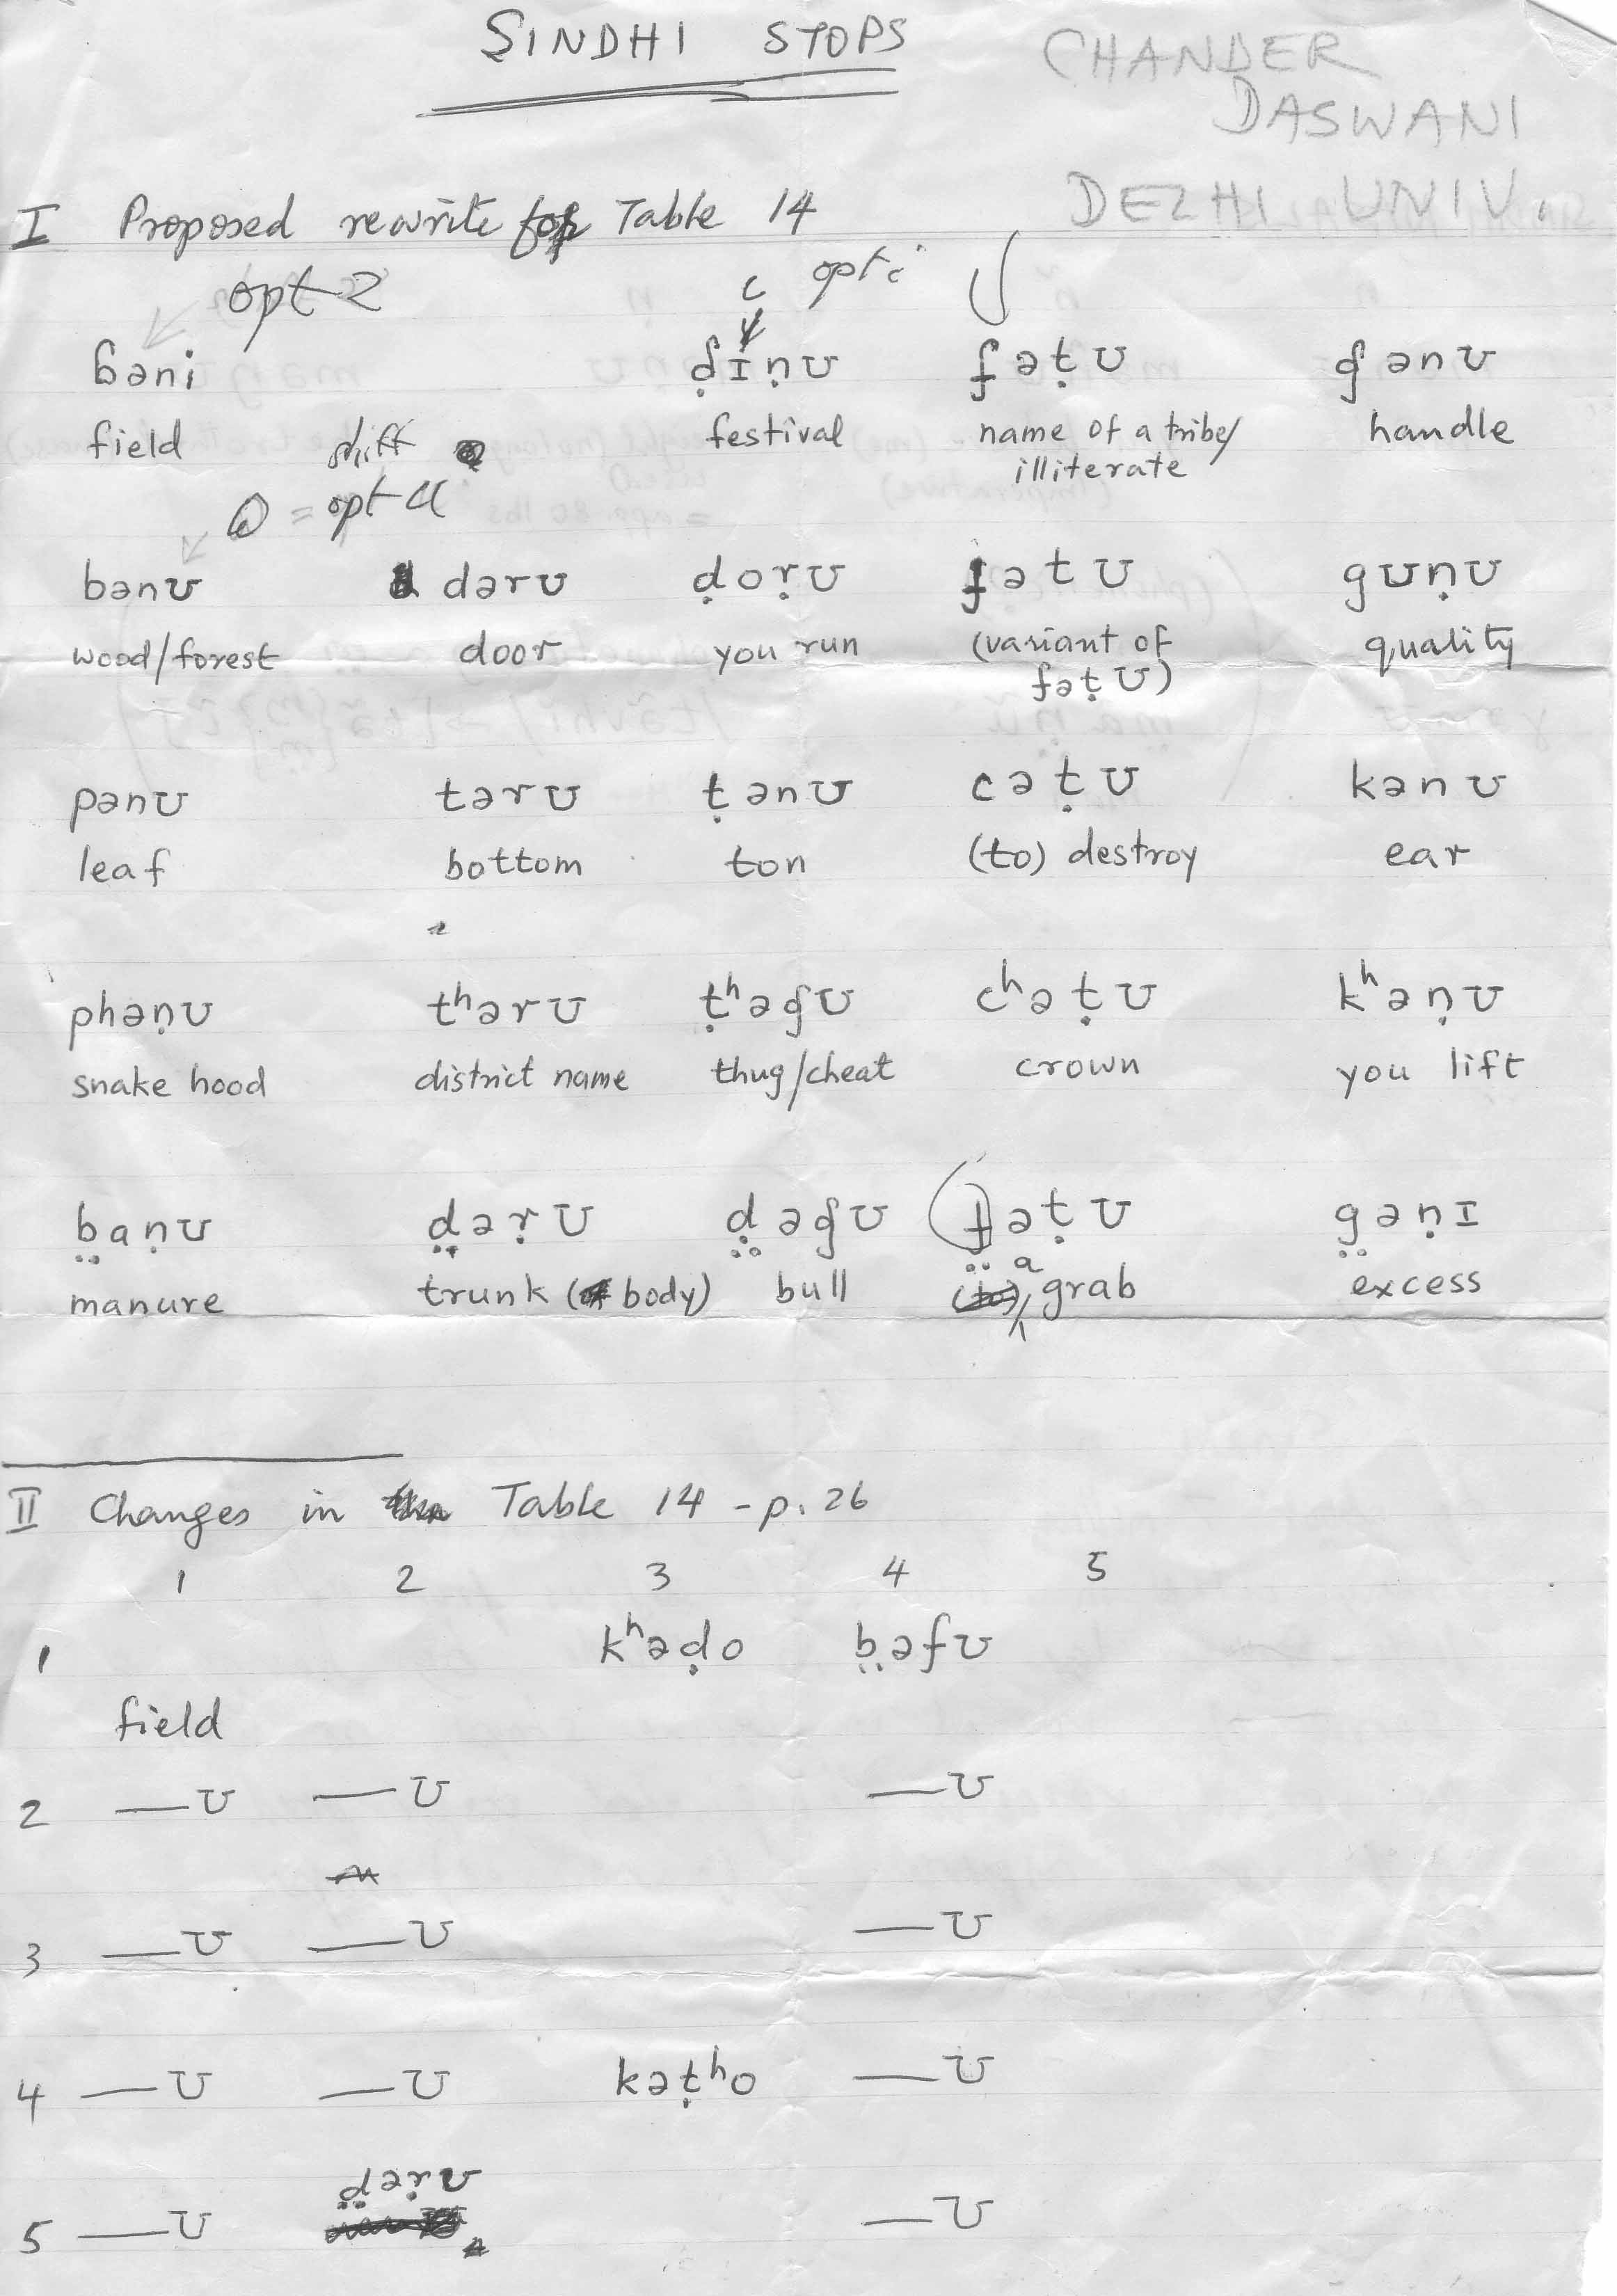 SINDHI STOPS
CHANDER
DASWANI
DELHI UNIV.
I Proposed rewrite for Table 14
opt 2
c opt i
ɓəni ɗ̣ɪṇʊ ʄəṭʊ ɠənʊ
field festival name of a tribe/ handle
illiterate
shift
= opt u
bənʊ dərʊ ḍoṛʊ ɟətʊ gʊṇʊ
wood/forest door you run (variant of quality
ʄəṭʊ)
pənʊ tərʊ ṭənʊ cəṭʊ kənʊ
leaf bottom ton (to) destroy ear
phəṇʊ tʰərʊ ṭʰəɠʊ cʰəṭʊ kʰəṇʊ
snake hood district name thug/cheat crown you lift
b̤aṇʊ d̤əṛʊ ḍ̤əɠʊ ɟ̤əṭʊ g̤əṇɪ
manure trunk (body) bull a grab excess
II Changes in Table 14 - p. 26
1 2 3 4 5
1 kʰəḍo b̤əfʊ
field
2 —ʊ —ʊ —ʊ
3 —ʊ —ʊ —ʊ
4 —ʊ —ʊ kəṭʰo —ʊ
5 —ʊ d̤əṛʊ —ʊ